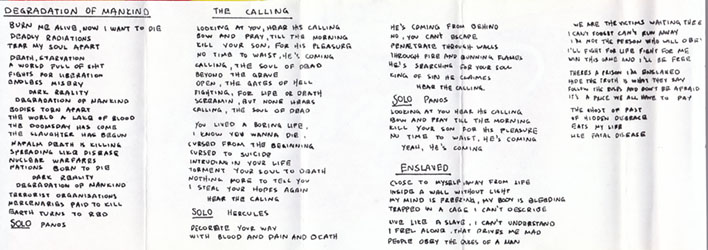 DEGRADATION OF MANKIND
BURN ME ALIVE, NOW I WANT TO DIE
DEADLY RADIATIONS
TEAR MY SOUL APART
DEATH, STARVATION
A WORLD FULL OF SHIT
FIGHTS FOR LIBERATION
ENDLESS MISERY
DARK REALITY
DEGRADATION OF MANKIND
BODIES TORN APART
THE WORLD A LAKE OF BLOOD
THE DOOMSDAY HAS COME
THE SLAUGHTER HAS BEGUN
NAPALM DEATH IS KILLING
SPREADING LIKE DISEASE
NUCLEAR WARFARES
NATIONS BORN TO DIE
DARK REALITY
DEGRADATION OF MANKIND
TERRORIST ORGANISATIONS
MERCENARIES PAID TO KILL
EARTH TURNS TO RED
SOLO PANOS
THE CALLING
LOOKING AT YOU, HEAR HIS CALLING
BOW AND PRAY, TILL THE MORNING
KILL YOUR SON, FOR HIS PLEASURE
NO TIME TO WAIST, HE'S COMING
CALLING, THE SOUL OF DEAD
BEYOND THE GRAVE
OPEN, THE GATES OF HELL
FIGHTING, FOR LIFE OR DEATH
SCREAMIN, BUT NONE HEARS
CALLING, THE SOUL OF DEAD
YOU LIVED A BORING LIFE,
I KNOW YOU WANNA DIE.
CURSED FROM THE BEGINNING
CURSED TO SUICIDE
INTRUDING IN YOUR LIFE
TORMENT YOUR SOUL TO DEATH
NOTHING MORE TO TELL YOU
I STEAL YOUR HOPES AGAIN
HEAR THE CALLING
SOLO HERCULES
DECORATE YOUR WAY
WITH BLOOD AND PAIN AND DEATH
HE'S COMING FROM BEHIND
NO, YOU CAN'T ESCAPE
PENETRATE THROUGH WALLS
THROUGH FIRE AND BURNING FLAMES
HE'S SEARCHING FOR YOUR SOUL
KING OF SIN HE CLAIMES
HEAR THE CALLING
SOLO PANOS
LOOKING AT YOU HEAR HIS CALLING
BOW AND PRAY TILL THE MORNING
KILL YOUR SON FOR HIS PLEASURE
NO TIME TO WAIST, HE'S COMING
YEAH, HE'S COMING
ENSLAVED
CLOSE TO MYSELF, AWAY FROM LIFE
INSIDE A WALL WITHOUT LIGHT
MY MIND IS FREEZING, MY BODY IS BLEEDING
TRAPPED IN A CAGE I CAN'T DESCRIBE
LIVE LIKE A SLAVE, I CAN'T UNDERSTAND
I FEEL ALONE, THAT DRIVES ME MAD
PEOPLE OBEY THE RULES OF A MAN
WE ARE THE VICTIMS WAITING THERE
I CAN'T FORGET CAN'T RUN AWAY
I'M NOT THE PERSON WHO WILL OBEY
I'LL FIGHT FOR LIFE FIGHT FOR ME
WIN THIS GAME AND I'LL BE FREE
THERE'S A PRISON I'M ENSLAVED
HIDE THE TRUTH IS WHAT THEY SAY
FOLLOW THE RULES AND DON'T BE AFRAID
IT'S A PRICE WE ALL HAVE TO PAY
THE GHOST OF PAST
OF HIDDEN
EATS MY LIFE
LIKE FATAL DISEASE